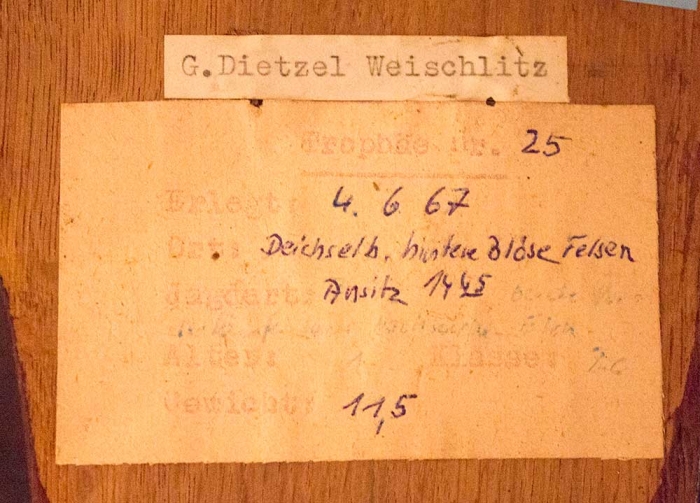 G.Dietzel Weischlitz
Trophäe Nr. 25
Erlegt: 4. 6 67
Ort: Deichselb. hintere Blöse Felsen
Jagdart: Ansitz 14 45
Alter: Klasse:
Gewicht: 11,5